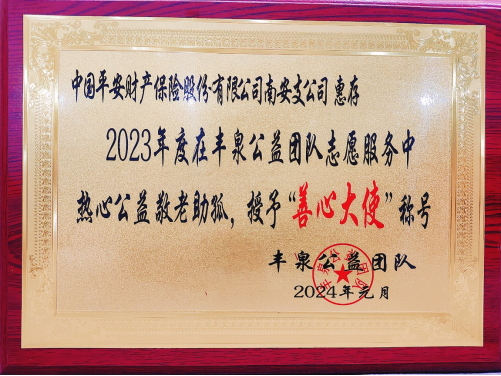 中国平安财产保险股份有限公司南安支公司 惠存
2023年度在丰泉公益团队志愿服务中
热心公益敬老助孤，授予“善心大使”称号
丰泉公益团队
2024年元月
丰泉公益团队